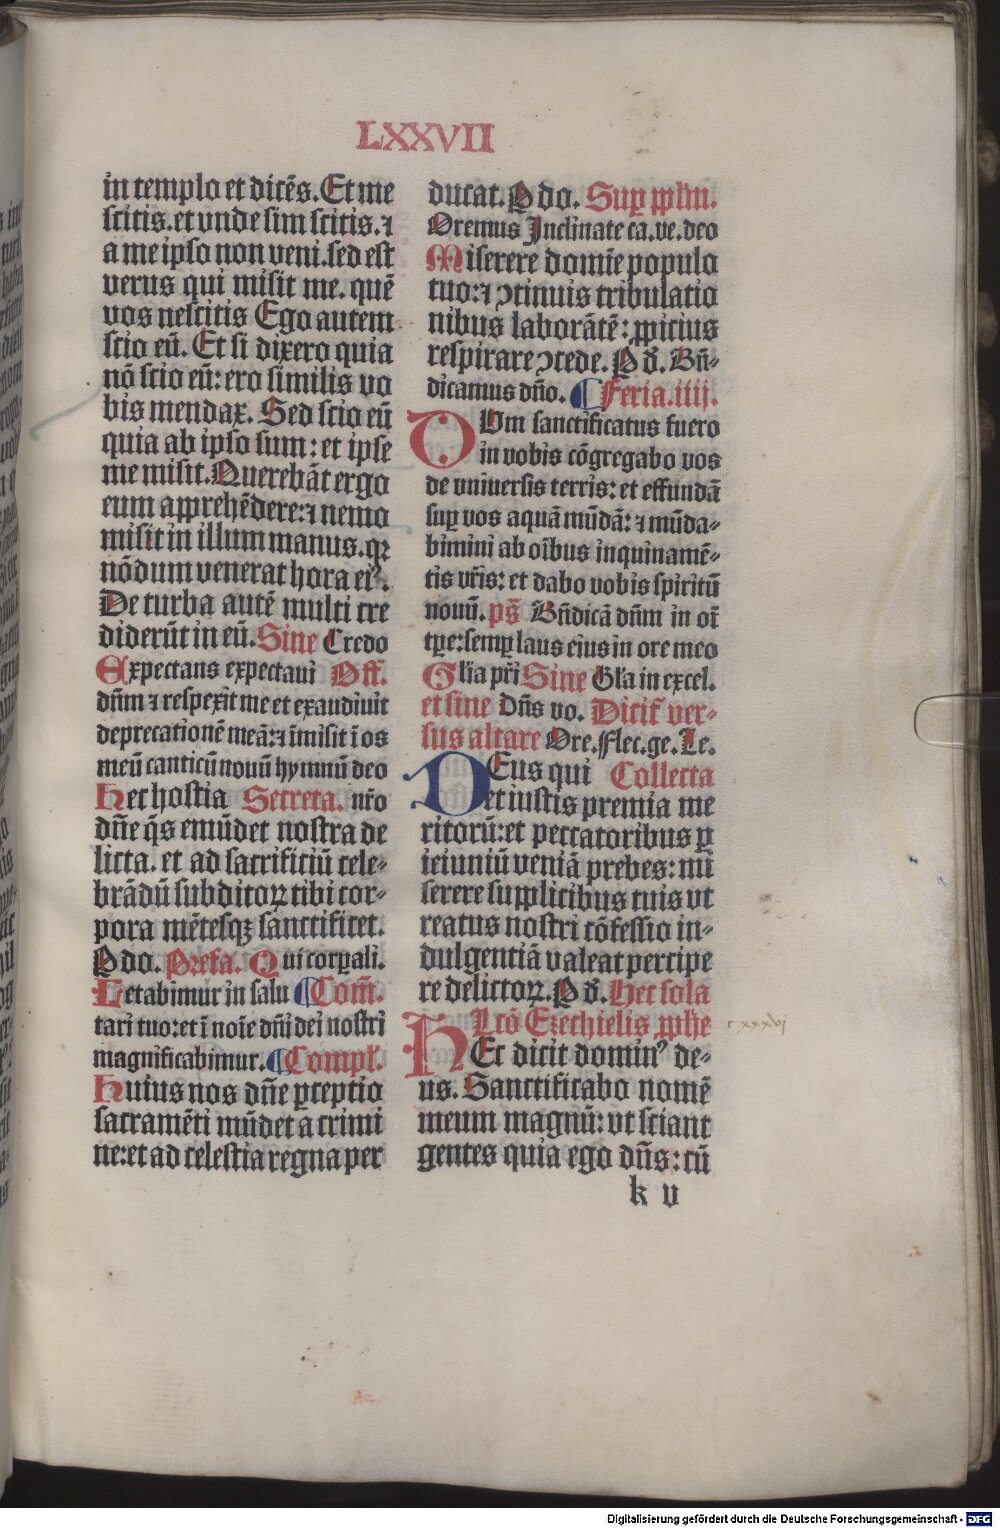 LXXVII
in templo et dicēs. Et me
scitis. et vnde sim scitis. ⁊
a me ipso non veni. sed est
verus qui misit me. quē
vos nescitis Ego autem
scio eū. Et si dixero quia
nō scio eū: ero similis vo
bis mendax. Sed scio eū
quia ab ipso sum: et ipse
me misit. Querebāt ergo
eum apprehēdere: ⁊ nemo
misit in illum manus. qꝛ
nōdum venerat hora eiꝰ.
De turba autē multi cre
diderūt in eū. Sine Credo
Expectans expectaui Off.
dn̄m ⁊ respexit me et exaudiuit
deprecationē meā: ⁊ īmisit ī os
meū canticū nouū hymnū deo
Hec hostia Secreta. nr̄o
dn̄e q̄s emūdet nostra de
licta. et ad sacrificiū cele⸗
brādū subditoꝝ tibi cor⸗
pora mētesqꝫ sanctificet.
P do. Prefa. Qui corꝑali.
Letabimur in salu ¶ Com̄.
tari tuo: et ī noīe dn̄i dei nostri
magnificabimur. ¶ Compl̄.
Huius nos dn̄e ꝑceptio
sacramēti mūdet a crimi
ne: et ad celestia regna per
ducat. P do. Suꝑ ppl̄m.
Oremus Inclinate ca. ve. deo
Miserere domīe populo
tuo: ⁊ ꝯtinuis tribulatio
nibus laborātē: ꝓpicius
respirare ꝯcede. P d̄. Bn̄⸗
dicamus dn̄o. ¶ Feria. iiij.
CVm sanctificatus fuero
in vobis cōgregabo vos
de vniuersis terris: et effundā
suꝑ vos aquā mūdā: ⁊ mūda⸗
bimini ab oībus inquinamē⸗
tis vr̄is: et dabo vobis spiritū
nouū. ps̄ Bn̄dicā dn̄m in oī
tꝑe: semꝑ laus eius in ore meo
Gl̄ia pr̄i Sine Gl̄a in excel.
et sine Dn̄s vo. Dicit̄ ver⸗
sus altare Ore. Flec. ge. Le.
DEus qui Collecta
et iustis premia me
ritorū: et peccatoribus ꝑ
ieiuniū veniā prebes: mi
serere supplicibus tuis vt
reatus nostri cōfessio in⸗
dulgentiā valeat percipe
re delictoꝝ. P d̄. Hec sola
Lcō Ezechielis ꝓph̄e
HEc dicit dominꝰ de⸗
us. Sanctificabo nomē
meum magnū: vt sciant
gentes quia ego dn̄s: cū
k v
Digitalisierung gefördert durch die Deutsche Forschungsgemeinschaft - DFG